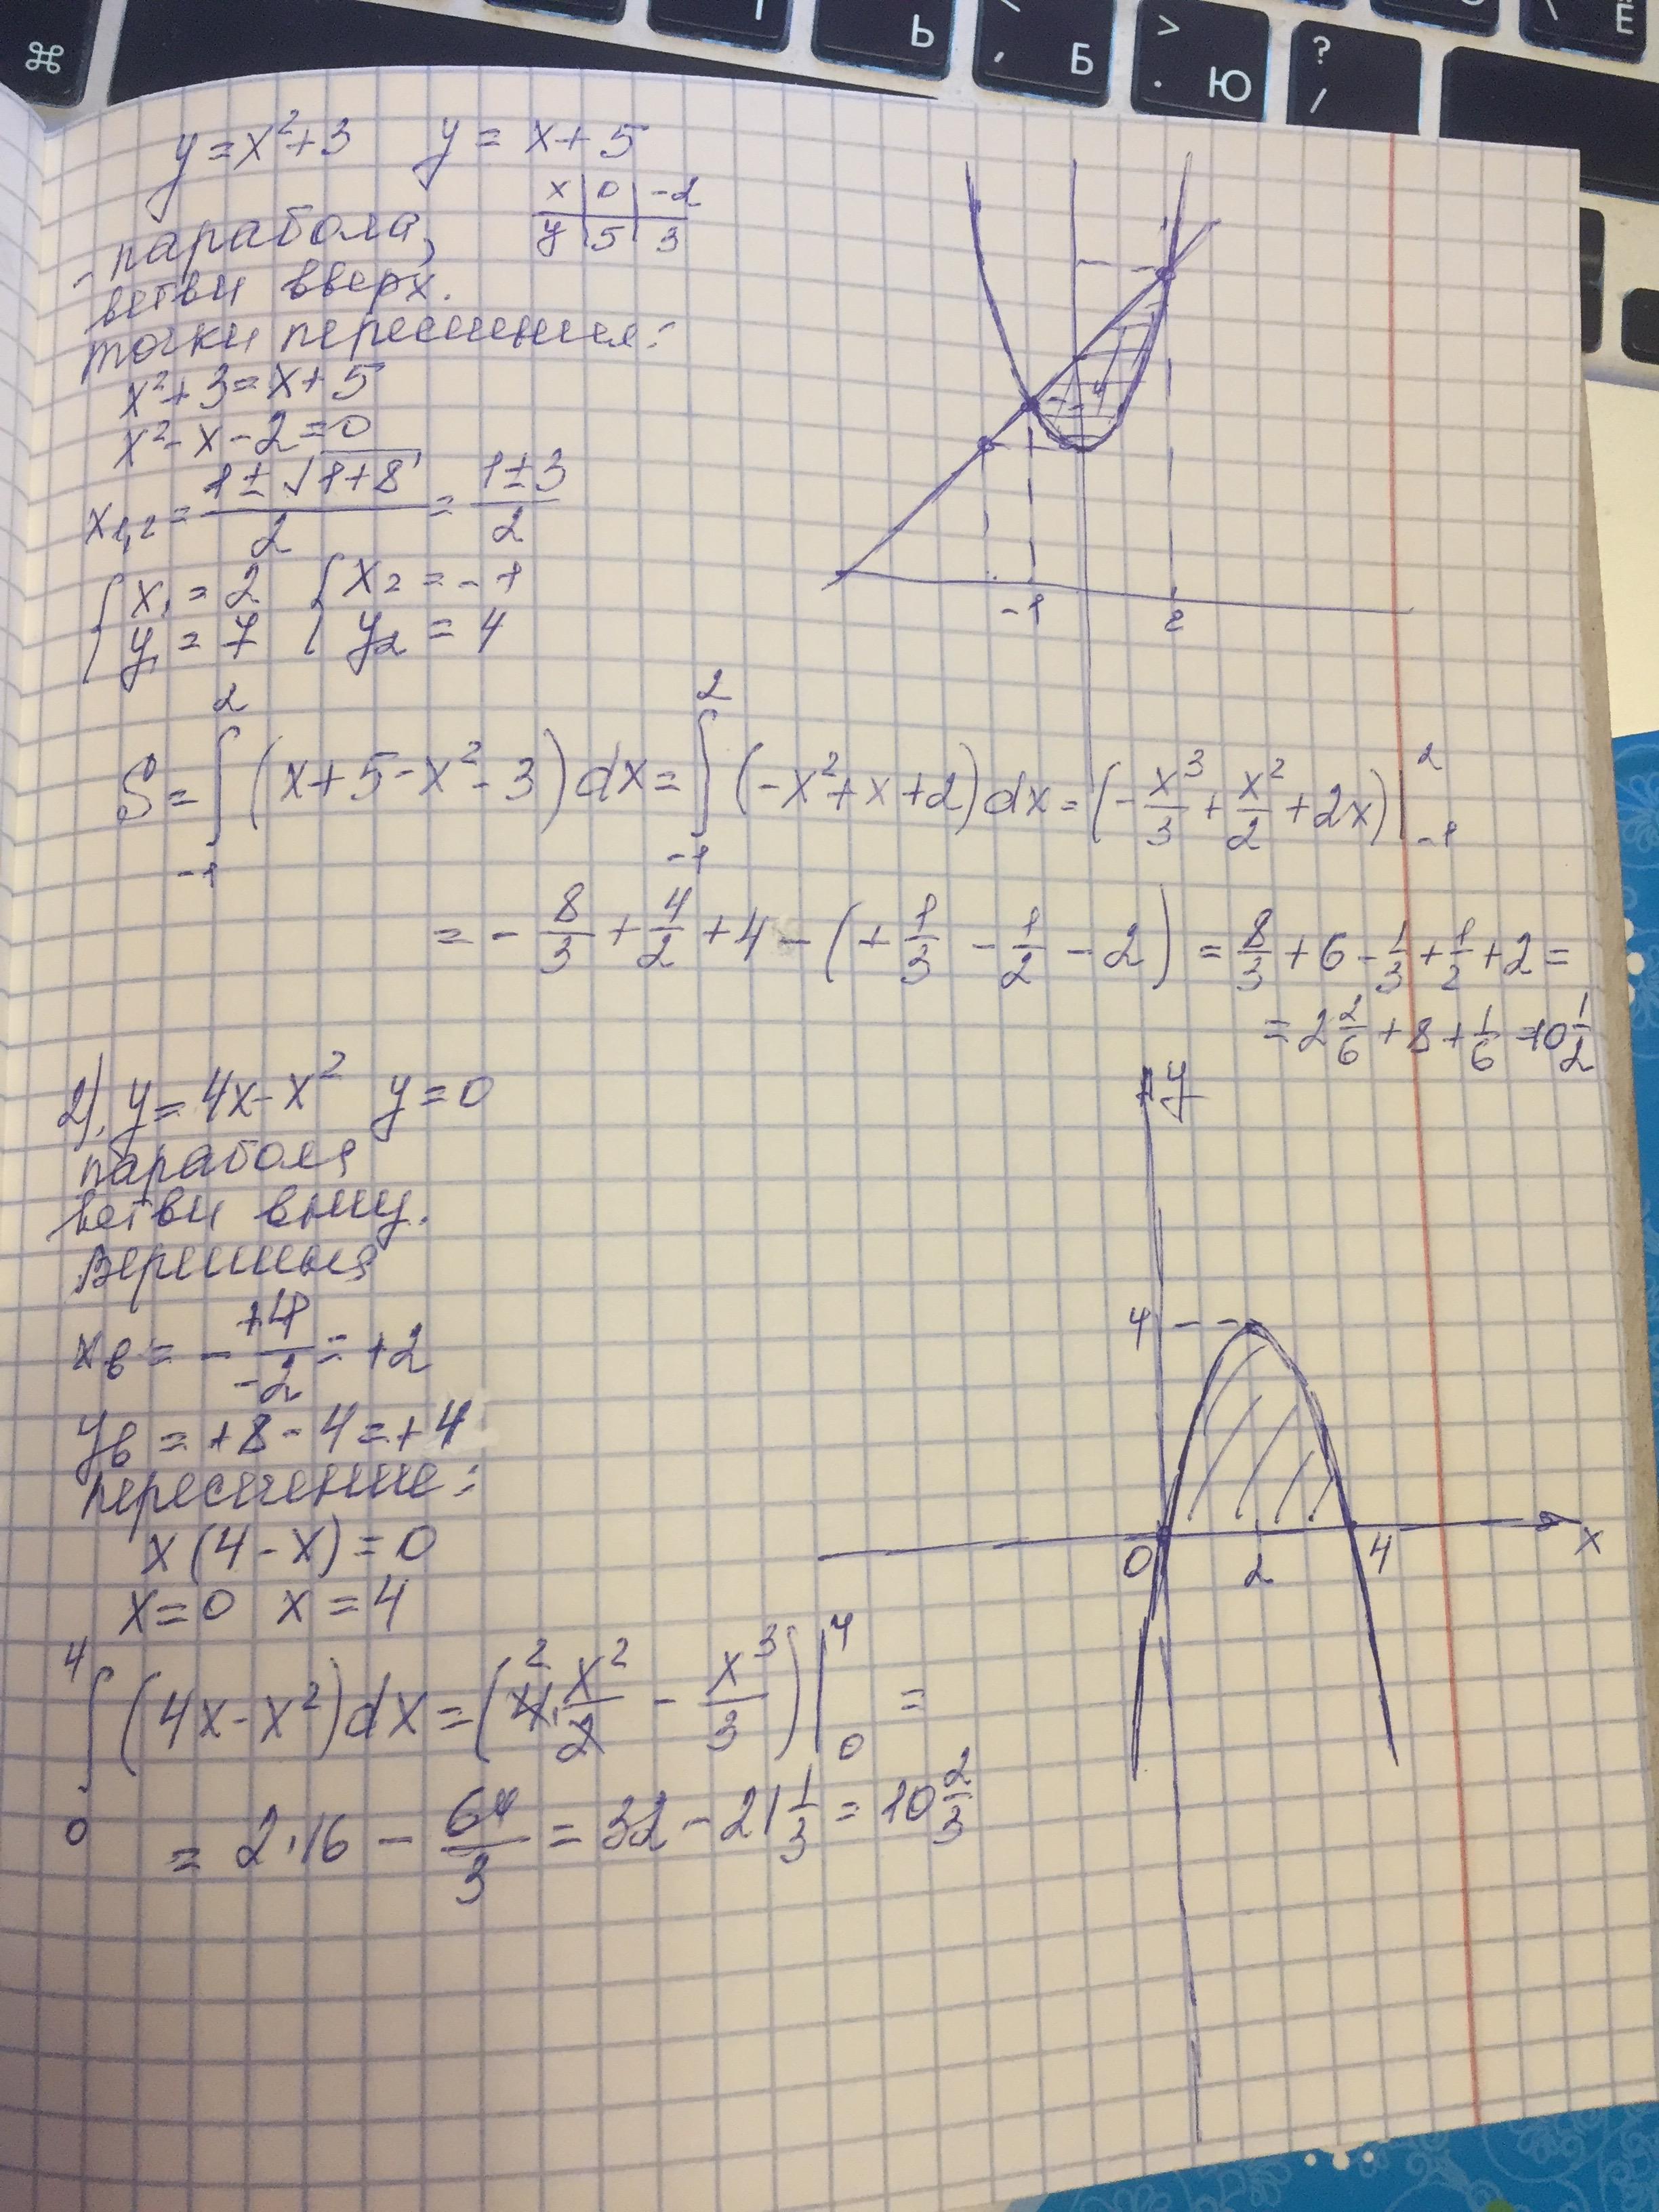 ⌘ Ь , Б > . Ю ? / Ё
y = x² + 3 y = x + 5
x | 0 | -2
y | 5 | 3
- парабола,
ветви вверх.
точки пересечения:
x² + 3 = x + 5
x² - x - 2 = 0
x₁,₂ = (1 ± √(1+8))/2 = (1 ± 3)/2
{ x₁ = 2 { x₂ = -1
{ y₁ = 7 { y₂ = 4
-1 2
S = ∫₋₁² (x + 5 - x² - 3) dx = ∫₋₁² (-x² + x + 2) dx = (-x³/3 + x²/2 + 2x) |₋₁²
= - 8/3 + 4/2 + 4 - (+ 1/3 - 1/2 - 2) = 8/3 + 6 - 1/3 + 1/2 + 2 =
= 2 2/6 + 8 + 1/6 = 10 1/2
2). y = 4x - x² y = 0
парабола
ветви вниз.
Вершина
xв = - +4/-2 = +2
yв = +8 - 4 = +4
пересечение:
x(4 - x) = 0
x = 0 x = 4
y
4
0 2 4 x
∫₀⁴ (4x - x²) dx = (4² · x²/2 - x³/3) |₀⁴ =
= 2·16 - 64/3 = 32 - 21 1/3 = 10 2/3